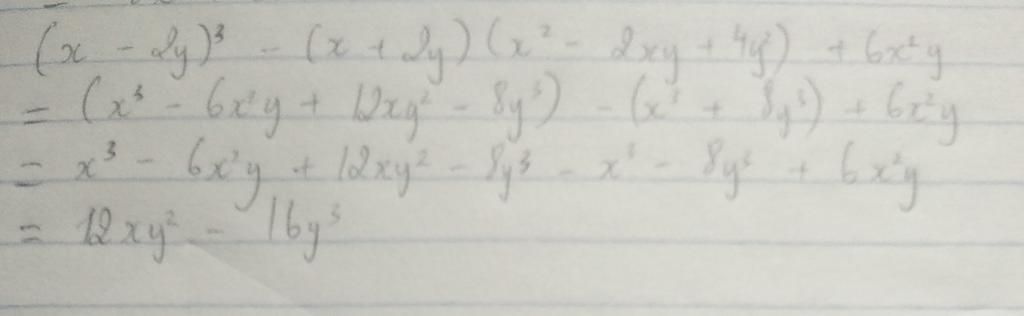 (x - 2y)³ - (x + 2y)(x² - 2xy + 4y²) + 6x²y
= (x³ - 6x²y + 12xy² - 8y³) - (x³ + 8y³) + 6x²y
= x³ - 6x²y + 12xy² - 8y³ - x³ - 8y³ + 6x²y
= 12xy² - 16y³